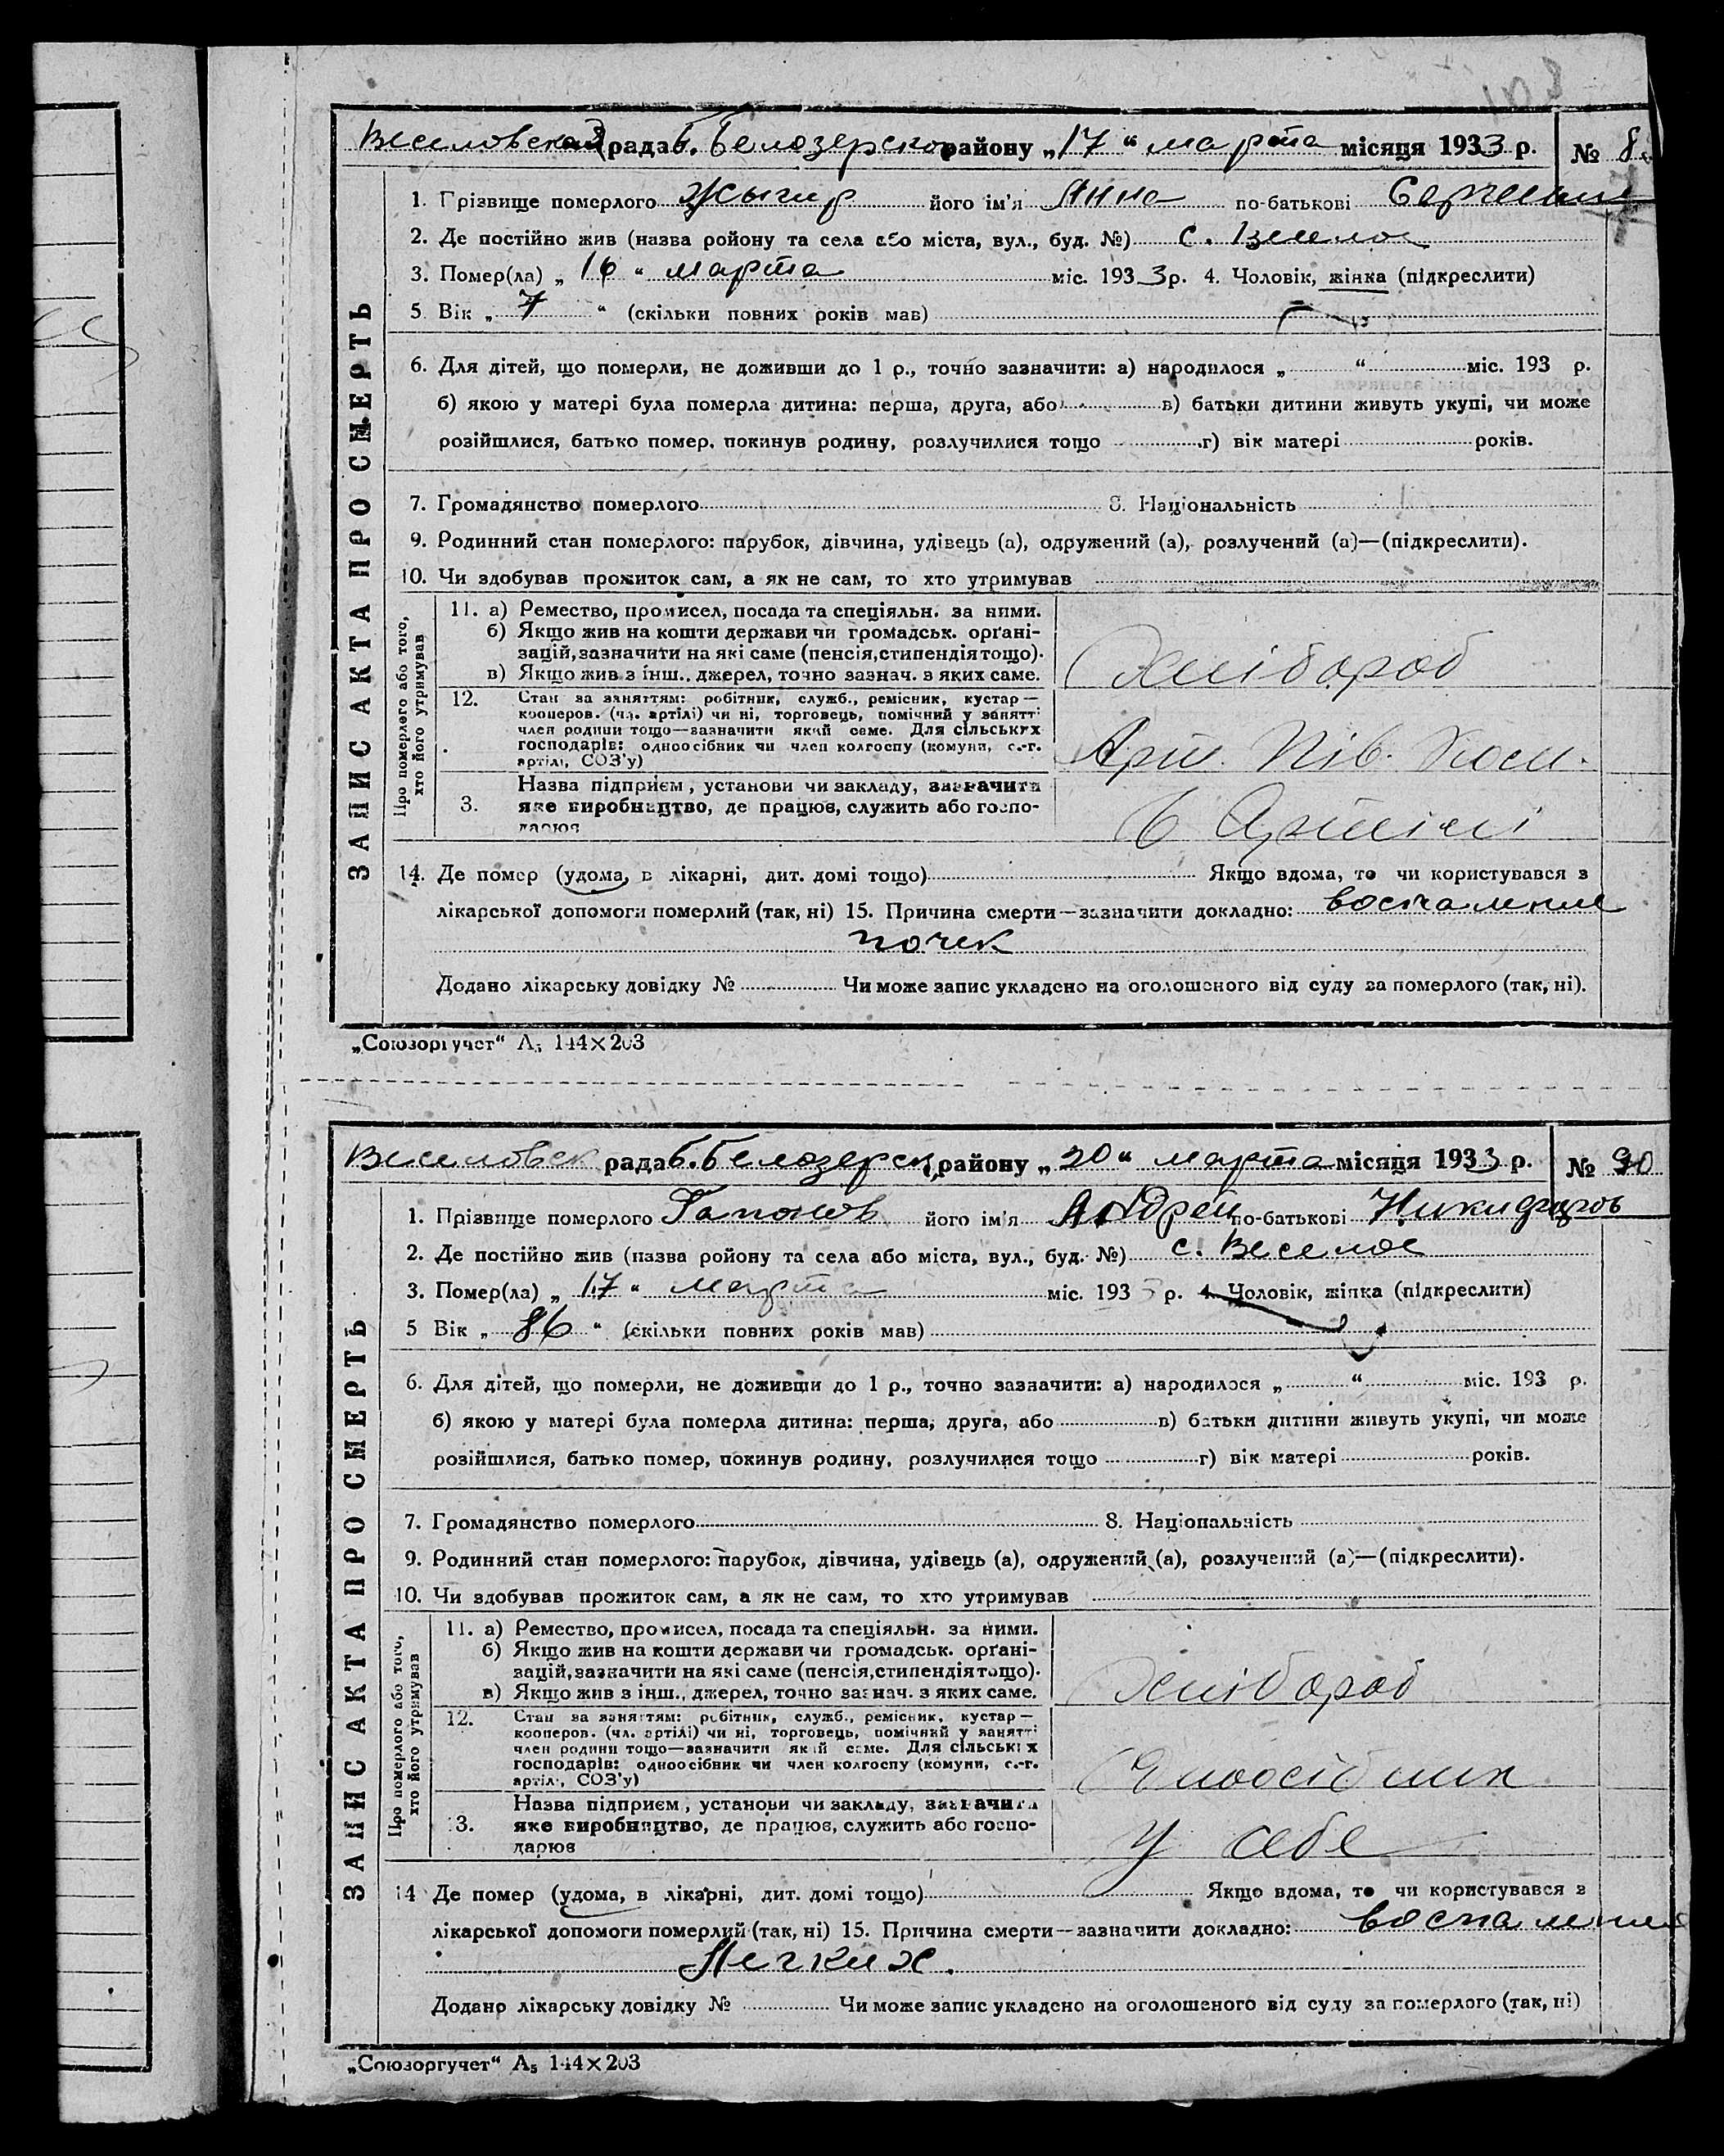 Веселовской рада Б. Белозерского району „17“ марта місяця 1933 р. № 8
1. Прізвище померлого Жыгир його ім'я Анна по-батькові Сергеевна
2. Де постійно жив (назва ройону та села або міста, вул., буд. №) с. Веселое
3. Помер(ла) „16“ марта міс. 1933 р. 4. Чоловік, жінка (підкреслити)
5 Вік „7“ (скільки повних років мав)
6. Для дітей, що померли, не доживши до 1 р., точно зазначити: а) народилося „ “ міс. 193 р.
б) якою у матері була померла дитина: перша, друга, або в) батьки дитини живуть укупі, чи може
розійшлися, батько помер, покинув родину, розлучилися тощо г) вік матері років.
7. Громадянство померлого 8. Національність
9. Родинний стан померлого: парубок, дівчина, удівець (а), одружений (а), розлучений (а)—(підкреслити).
10. Чи здобував прожиток сам, а як не сам, то хто утримував
ЗАПИС АКТА ПРО СМЕРТЬ
Про померлого або того,
хто його утримував
11. а) Ремество, промисел, посада та спеціяльн. за ними.
б) Якщо жив на кошти держави чи громадськ. орґані-
зацій, зазначити на які саме (пенсія, стипендія тощо).
в) Якщо жив з інш. джерел, точно зазнач. з яких саме.
Хлібороб
12. Стан за заняттям: робітник, служб., ремісник, кустар—
кооперов. (чл. артілі) чи ні, торговець, помічний у занятті
член родини тощо—зазначити який саме. Для сільських
господарів: одноосібник чи член колгоспу (комуни, с.-г.
артілі, СОЗ'у)
Арт. Пів. Ком.
3. Назва підприєм, установи чи закладу, зазначити
яке виробництво, де працює, служить або госпо-
дарює
в Артілі
14. Де помер (удома, в лікарні, дит. домі тощо) Якщо вдома, то чи користувався з
лікарської допомоги померлий (так, ні) 15. Причина смерти—зазначити докладно: воспаление
почек
Додано лікарську довідку № Чи може запис укладено на оголошеного від суду за померлого (так, ні).
„Союзоргучет“ А₅ 144×203
Веселовск рада Б. Белозерск. району „20“ марта місяця 1933 р. № 90
1. Прізвище померлого Гапонов його ім'я Андрей по-батькові Никифиров
2. Де постійно жив (назва ройону та села або міста, вул., буд. №) с. Веселое
3. Помер(ла) „17“ марта міс. 1933 р. 4. Чоловік, жінка (підкреслити)
5 Вік „86“ (скільки повних років мав)
6. Для дітей, що померли, не доживши до 1 р., точно зазначити: а) народилося „ “ міс. 193 р.
б) якою у матері була померла дитина: перша, друга, або в) батьки дитини живуть укупі, чи може
розійшлися, батько помер, покинув родину, розлучилися тощо г) вік матері років.
7. Громадянство померлого 8. Національність
9. Родинний стан померлого: парубок, дівчина, удівець (а), одружений (а), розлучений (а)—(підкреслити).
10. Чи здобував прожиток сам, а як не сам, то хто утримував
ЗАПИС АКТА ПРО СМЕРТЬ
Про померлого або того,
хто його утримував
11. а) Ремество, промисел, посада та спеціяльн. за ними.
б) Якщо жив на кошти держави чи громадськ. орґані-
зацій, зазначити на які саме (пенсія, стипендія тощо).
в) Якщо жив з інш. джерел, точно зазнач. з яких саме.
Хлібороб
12. Стан за заняттям: робітник, служб., ремісник, кустар—
кооперов. (чл. артілі) чи ні, торговець, помічний у занятті
член родини тощо—зазначити який саме. Для сільських
господарів: одноосібник чи член колгоспу (комуни, с.-г.
артілі, СОЗ'у)
Єноосібник
3. Назва підприєм, установи чи закладу, зазначити
яке виробництво, де працює, служить або госпо-
дарює
у себе
14 Де помер (удома, в лікарні, дит. домі тощо) Якщо вдома, то чи користувався з
лікарської допомоги померлий (так, ні) 15. Причина смерти—зазначити докладно: воспаление
Легких.
Додано лікарську довідку № Чи може запис укладено на оголошеного від суду за померлого (так, ні)
„Союзоргучет“ А₅ 144×203